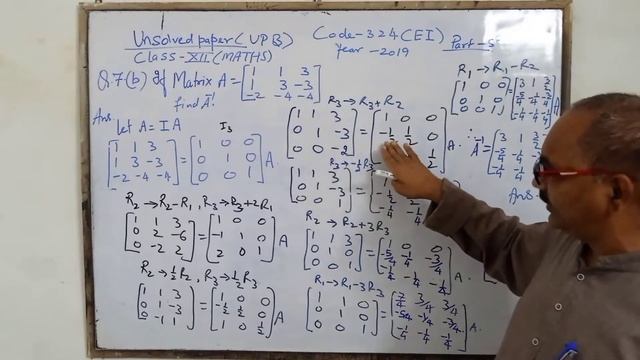 Unsolved paper (UPB) Code-324(CEI)
Class-XII(MATHS) year-2019 Part-5
Q.7(b) If Matrix A = [1 1 3
1 3 -3
-2 -4 -4]
find A⁻¹
Ans. let A = IA
I₃
[1 1 3
1 3 -3
-2 -4 -4] = [1 0 0
0 1 0
0 0 1] A
R₂ → R₂ - R₁, R₃ → R₃ + 2R₁
[1 1 3
0 2 -6
0 -2 2] = [1 0 0
-1 1 0
2 0 1] A
R₂ → ½R₂, R₃ → ½R₃
[1 1 3
0 1 -3
0 -1 1] = [1 0 0
-½ ½ 0
1 0 ½] A
R₃ → R₃ + R₂
[1 1 3
0 1 -3
0 0 -2] = [1 0 0
-½ ½ 0
½]
R₃ → -½R₃
[1 1 3
0 1 -3
0 0 1] =
R₂ → R₂ + 3R₃
[1 1 3
0 1 0
0 0 1] = [1 0 0
-5/4 -1/4 -3/4
-1/4 -1/4 -1/4] A.
R₁ → R₁ - 3R₃
[1 1 0
0 1 0
0 0 1] = [7/4 3/4 3/4
-5/4 -1/4 -3/4
-1/4 -1/4 -1/4] A.
R₁ → R₁ - R₂
[1 0 0
0 1 0
0 0 1] = [3 1 3/2
-5/4 -1/4 -3/4
-1/4 -1/4 -1/4]
∴ A⁻¹ = [3 1
-5/4 -1/4
-1/4 -1/4
Ans.